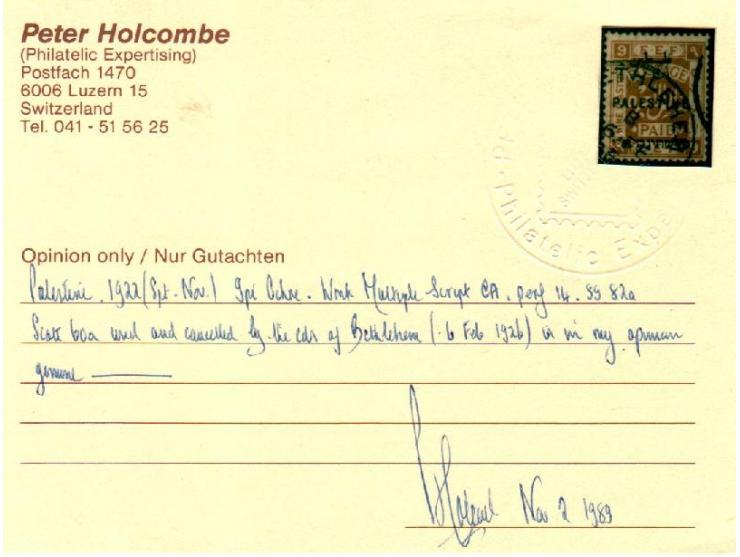 Peter Holcombe
(Philatelic Expertising)
Postfach 1470
6006 Luzern 15
Switzerland
Tel. 041 - 51 56 25
9
PALESTINE
PAID
Philatelic Expe
Opinion only / Nur Gutachten
Palestine. 1922 (Spt-Nov.) 9pi Ochre. Wmk Multiple Script CA. perf 14. SG 82a
Scott 60a used and cancelled by the cds of Bethlehem (-6 Feb 1926) is in my opinion
genuine
Nov 2 1989